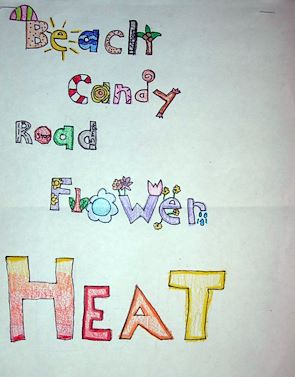 Beach
Candy
Road
Flower
HEAT